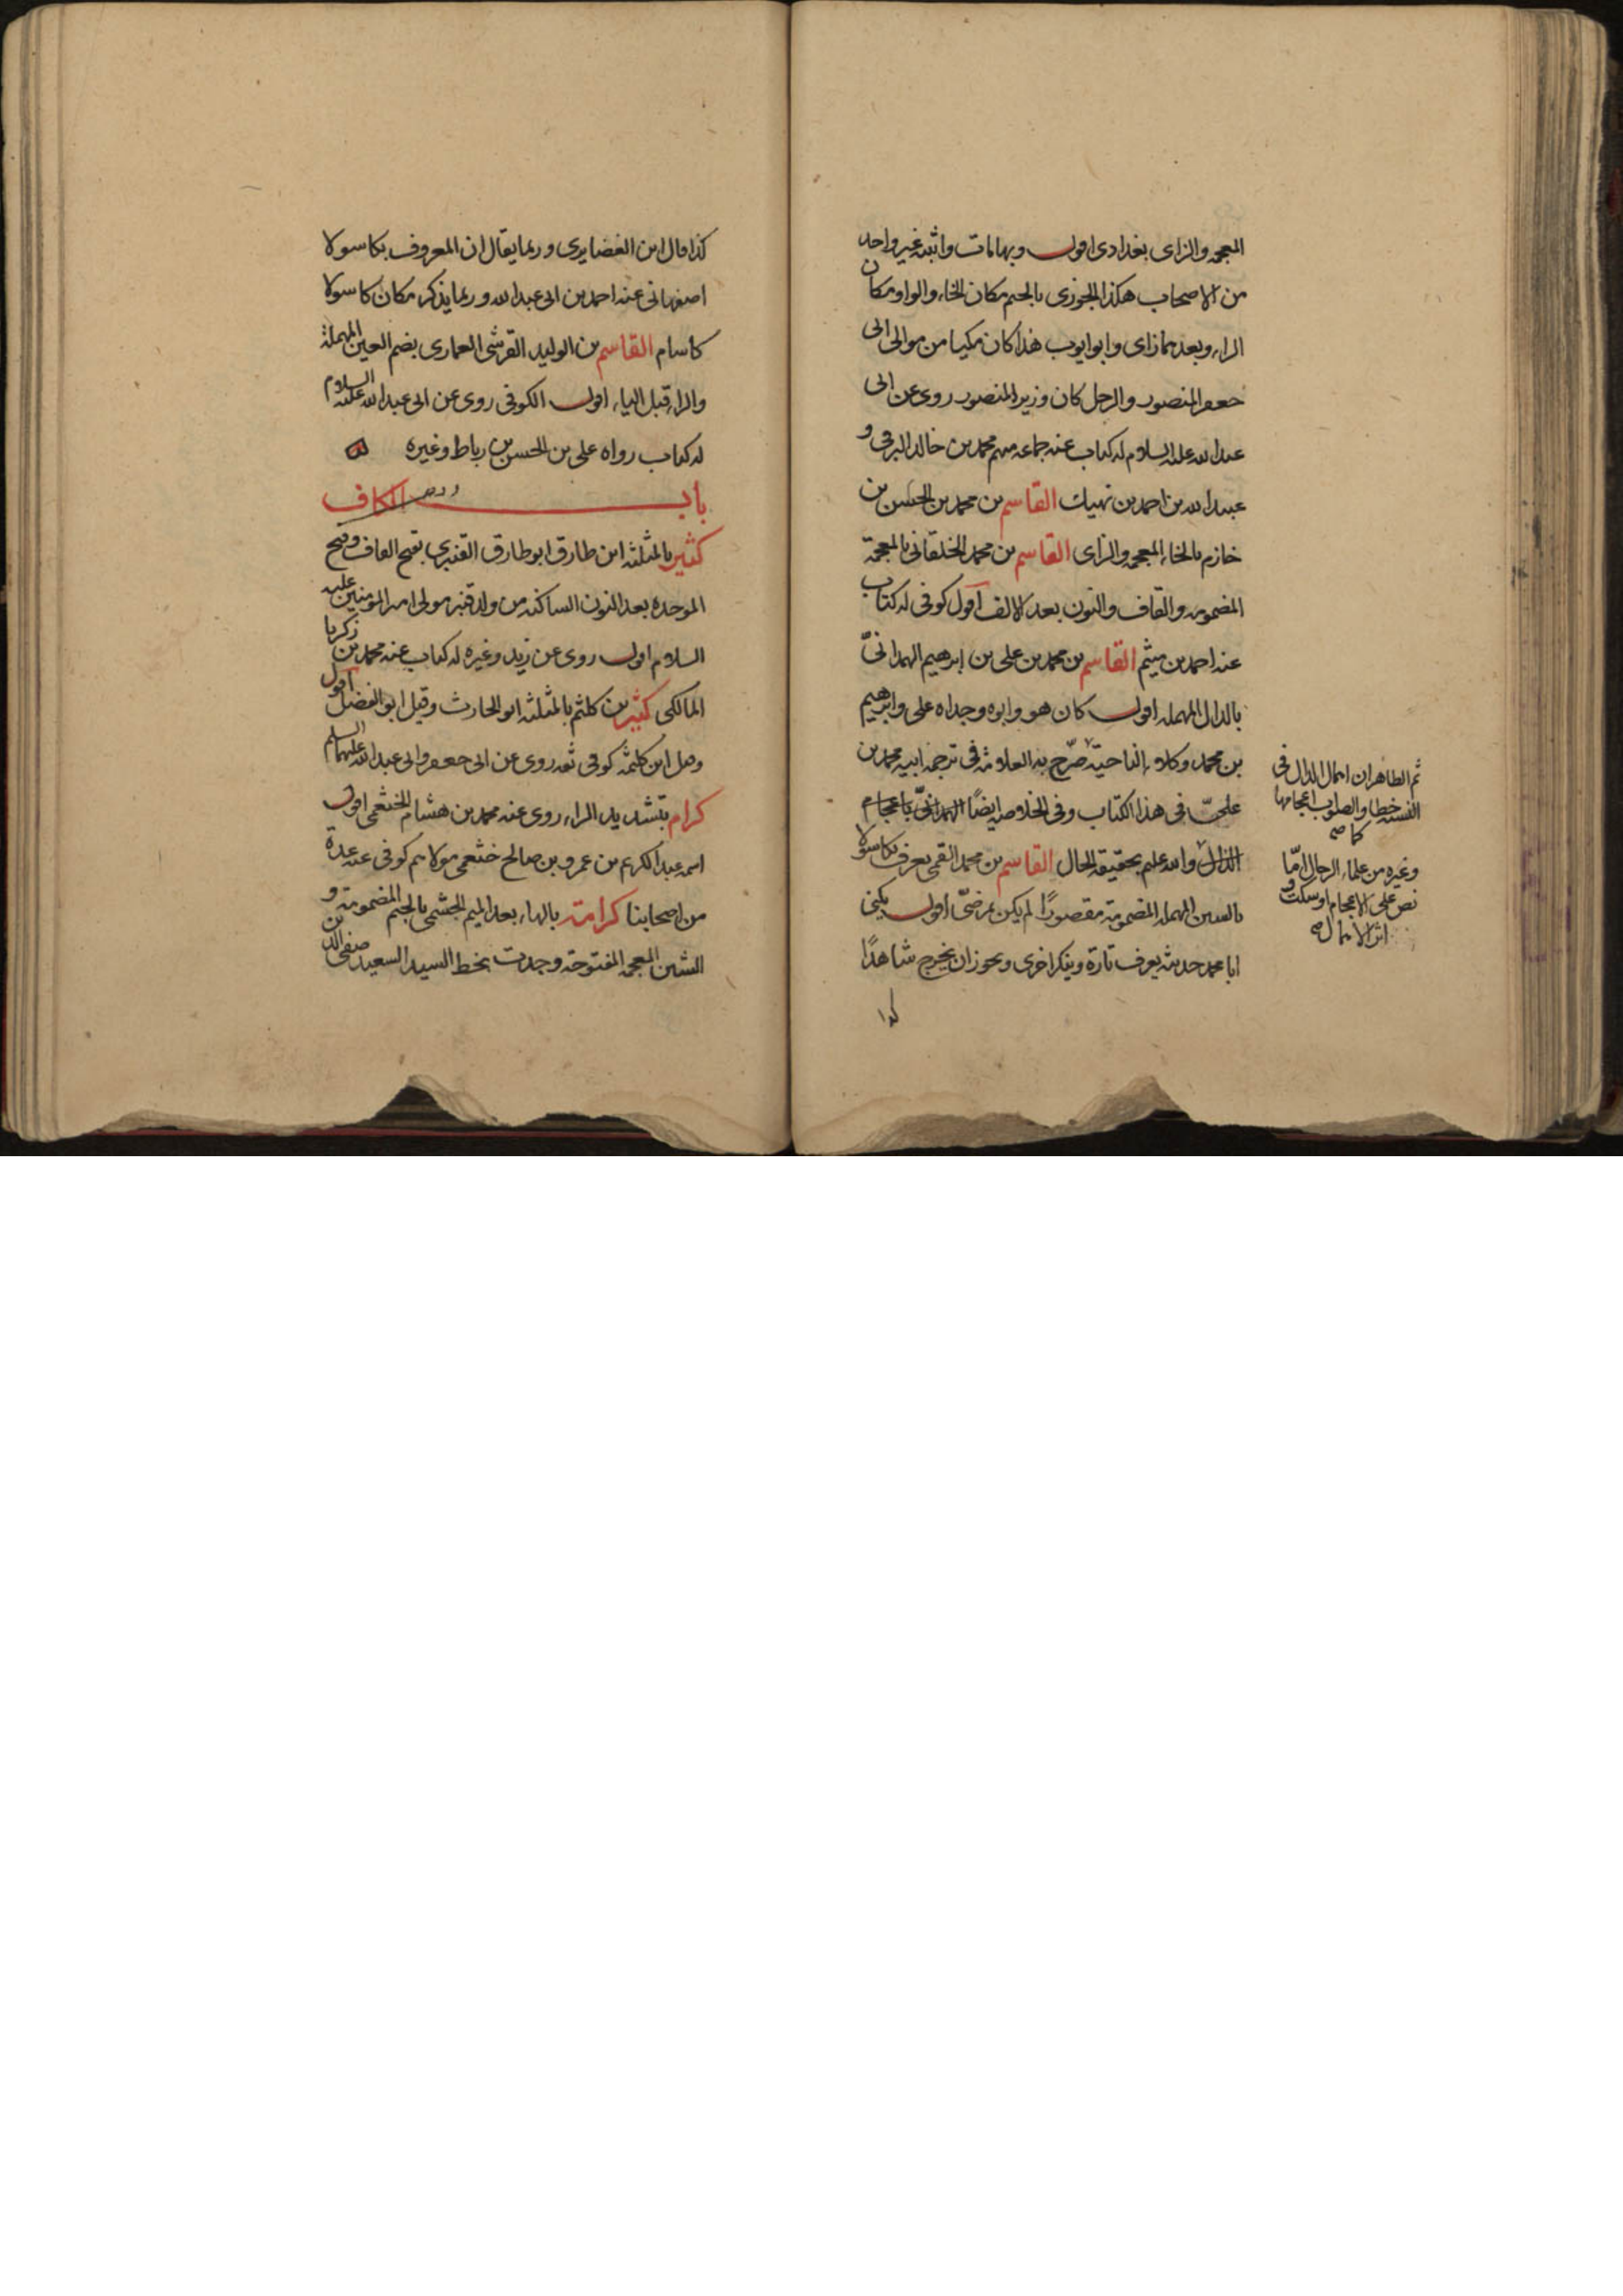 المعجمه والزاى بغدادى اقول وبها مات واثبته غير واحد
من الاصحاب هكذا الجوزى بالجيم مكان الخاء والواو مكان
الراء وبعدهما زاى وابو ايوب هذا كان مكيا من موالى ابى
جعفر المنصور والرجل كان وزير المنصور روى عن ابى
عبدالله عليه السلام له كتاب عنه جماعه منهم محمد بن خالد البرقى و
عبيدالله بن احمد بن نهيك القاسم بن محمد بن الحسين بن
خازم بالخاء المعجمه والزاى القاسم بن محمد الخلقانى بالمعجمة
المضمومه والقاف والنون بعد الالف اقول كوفى له كتاب
عنه احمد بن ميثم القاسم بن محمد بن على بن ابرهيم الهمدانىّ
بالدال المهمله اقول كان هو وابوه وجداه على وابرهيم
بن محمد وكلاء الناحية صرّح به العلامة فى ترجمه ابيه محمد بن
علىّ فى هذا الكتاب وفى الخلاصه ايضًا الهمدانىّ باعجام
الذال والله عليم بحقيقه الحال القاسم بن محمد القمى يعرف بكاسولا
بالسين المهمله المضمومة مقصورًا لم يكن بمرضىّ اقول يكنى
ابا محمد حديثه يعرف تارة وينكر اخرى ويجوز ان يخرج شاهدًا
كذا
ثم الظاهر ان اهمال الدال فى
النسبه خطا والصواب اعجامها
كا صه
وغيره من علماء الرجال امّا
نص على الاعجام او سكت و
اثر الاهمال صه
كذا قال ابن الغضايرى وربما يقال ان المعروف بكاسولا
اصفهانى عنه احمد بن ابى عبدالله وربما يذكر مكان كاسولا
كاسام القاسم بن الوليد القرشى العمارى بضم العين المهملة
والراء قبل الياء اقول الكوفى روى عن ابى عبدالله عليه السلام
له كتاب رواه على بن الحسن بن رباط وغيره
باب الكاف
كثير بالمثلثه ابن طارق ابو طارق القنبرى بفتح القاف وفتح
الموحده بعد النون الساكنه من ولد قنبر مولى امير المومنين عليه
السلام اقول روى عن زيد وغيره له كتاب عنه محمد بن زكريا
المالكى كثير بن كلثم بالمثلثه ابو الحارث وقيل ابو الفضل اقول
وقيل ابن كلثمه كوفى ثقه روى عن ابى جعفر وابى عبدالله عليهما السلم
كرام بتشديد الراء روى عنه محمد بن هشام الخثعمى اقول
اسمه عبدالكريم بن عمرو بن صالح خثعمى مولاهم كوفى عنه عدة
من اصحابنا كرامة بالهاء بعد الميم الجشمى بالجيم المضمومة و
الشين المعجمه المفتوحة وجدت بخط السيد السعيد صفى الدين